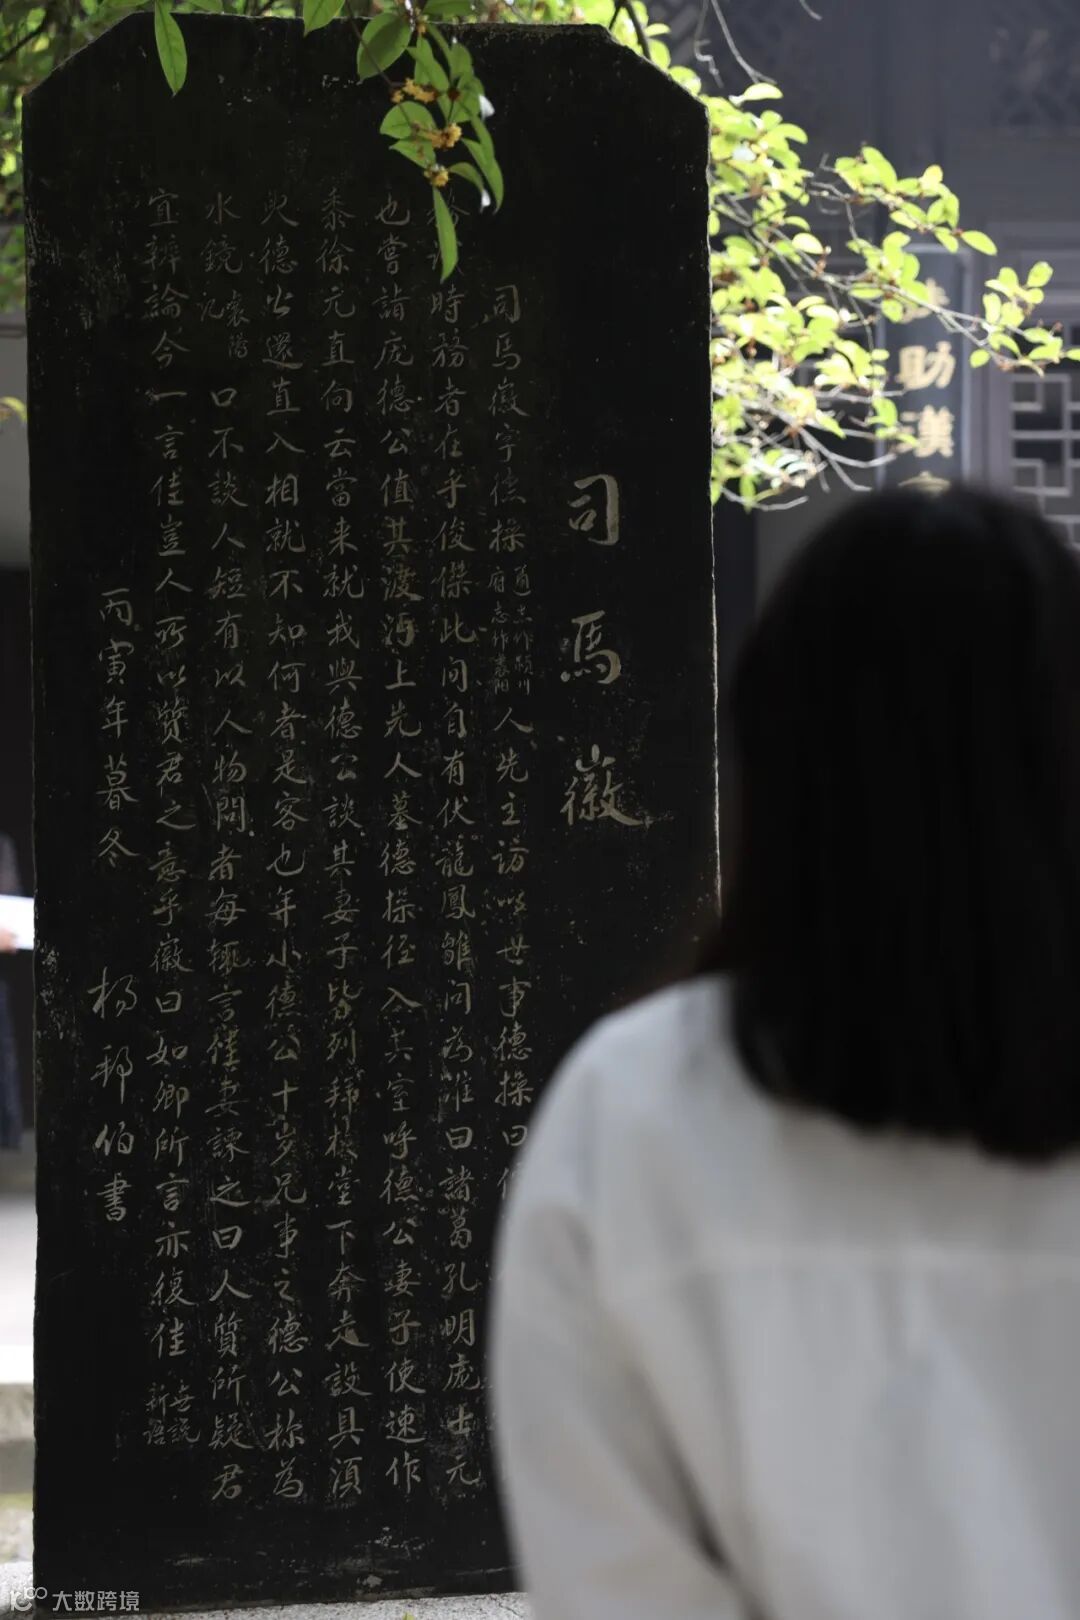 司馬徽
司馬徽字德操
通志作潁川
府志作襄陽
人先主訪以世事德操曰
時務者在乎俊傑此间自有伏龍鳳雛问为誰曰諸葛孔明龐士元
也嘗詣庞德公值其渡沔上先人墓德操径入其室呼德公妻子使速作
黍徐元直向云當来就我與德公談其妻子皆列拜於堂下奔走設具須
臾德公還直入相就不知何者是客也年小德公十岁兄事之德公称為
水鏡
襄陽
记
口不談人短有以人物問者每輒言佳妻諫之曰人質所疑君
宜辨論今一言佳豈人所以贊君之意乎徽曰如卿所言亦復佳
世説
新语
丙寅年暮冬 杨邦伯書
助漢
大数跨境